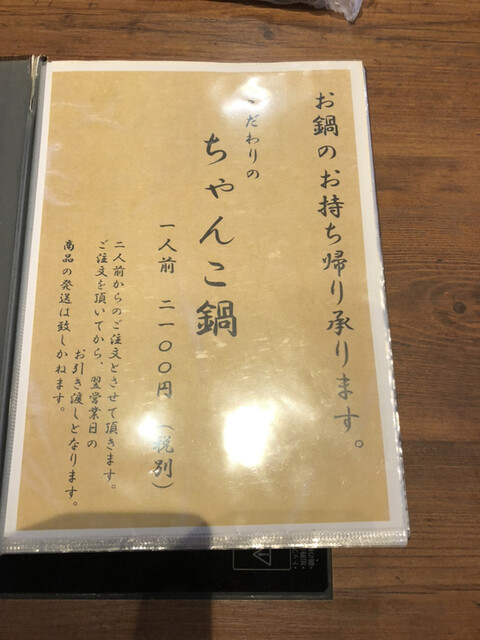 お鍋のお持ち帰り承ります。
こだわりの
ちゃんこ鍋
一人前 二一〇〇円（税別）
二人前からのご注文とさせて頂きます。
ご注文を頂いてから、翌営業日の
お引き渡しとなります。
商品の発送は致しかねます。